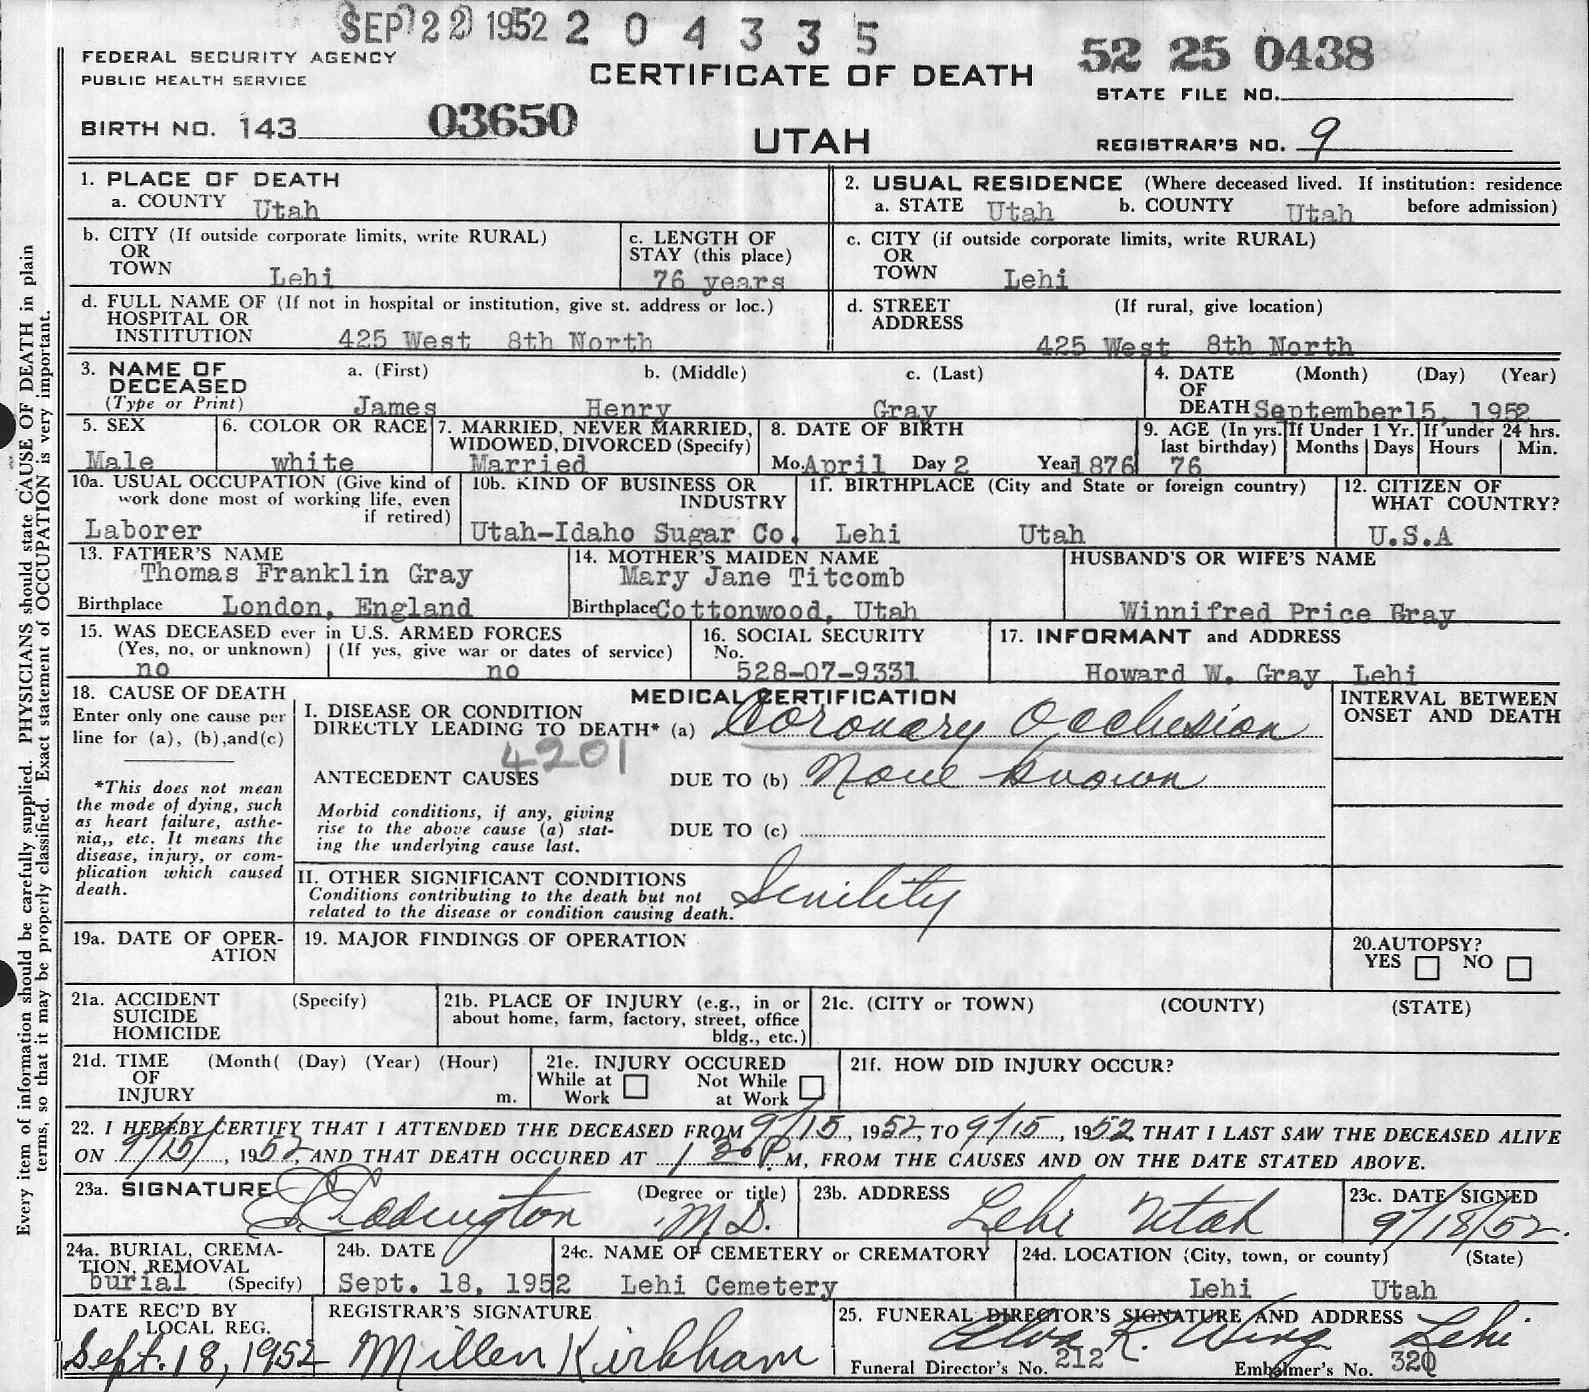 SEP 22 1952 2 0 4 3 3 5
FEDERAL SECURITY AGENCY
PUBLIC HEALTH SERVICE
CERTIFICATE OF DEATH
52 25 0438
STATE FILE NO.
BIRTH NO. 143 03650
UTAH
REGISTRAR'S NO. 9
1. PLACE OF DEATH
a. COUNTY Utah
2. USUAL RESIDENCE (Where deceased lived. If institution: residence
a. STATE Utah b. COUNTY Utah before admission)
b. CITY (If outside corporate limits, write RURAL)
OR
TOWN Lehi
c. LENGTH OF
STAY (this place)
76 years
c. CITY (if outside corporate limits, write RURAL)
OR
TOWN Lehi
d. FULL NAME OF (If not in hospital or institution, give st. address or loc.)
HOSPITAL OR
INSTITUTION 425 West 8th North
d. STREET (If rural, give location)
ADDRESS
425 West 8th North
3. NAME OF a. (First) b. (Middle) c. (Last)
DECEASED
(Type or Print) James Henry Gray
4. DATE (Month) (Day) (Year)
OF
DEATH September 15, 1952
5. SEX
Male
6. COLOR OR RACE
white
7. MARRIED, NEVER MARRIED,
WIDOWED, DIVORCED (Specify)
Married
8. DATE OF BIRTH
Mo. April Day 2 Year 1876
9. AGE (In yrs.
last birthday)
76
If Under 1 Yr.
Months Days
If under 24 hrs.
Hours Min.
10a. USUAL OCCUPATION (Give kind of
work done most of working life, even
if retired)
Laborer
10b. KIND OF BUSINESS OR
INDUSTRY
Utah-Idaho Sugar Co.
11. BIRTHPLACE (City and State or foreign country)
Lehi Utah
12. CITIZEN OF
WHAT COUNTRY?
U.S.A
13. FATHER'S NAME
Thomas Franklin Gray
Birthplace London, England
14. MOTHER'S MAIDEN NAME
Mary Jane Titcomb
Birthplace Cottonwood, Utah
HUSBAND'S OR WIFE'S NAME
Winnifred Price Gray
15. WAS DECEASED ever in U.S. ARMED FORCES
(Yes, no, or unknown) (If yes, give war or dates of service)
no no
16. SOCIAL SECURITY
No.
528-07-9331
17. INFORMANT and ADDRESS
Howard W. Gray Lehi
18. CAUSE OF DEATH
Enter only one cause per
line for (a), (b), and (c)
*This does not mean
the mode of dying, such
as heart failure, asthe-
nia,, etc. It means the
disease, injury, or com-
plication which caused
death.
MEDICAL CERTIFICATION
I. DISEASE OR CONDITION
DIRECTLY LEADING TO DEATH* (a) Coronary Occlusion
4201
ANTECEDENT CAUSES DUE TO (b) None known
Morbid conditions, if any, giving
rise to the above cause (a) stat-
ing the underlying cause last.
DUE TO (c)
II. OTHER SIGNIFICANT CONDITIONS
Conditions contributing to the death but not
related to the disease or condition causing death.
Senility
INTERVAL BETWEEN
ONSET AND DEATH
19a. DATE OF OPER-
ATION
19. MAJOR FINDINGS OF OPERATION
20. AUTOPSY?
YES NO
21a. ACCIDENT (Specify)
SUICIDE
HOMICIDE
21b. PLACE OF INJURY (e.g., in or
about home, farm, factory, street, office
bldg., etc.)
21c. (CITY or TOWN) (COUNTY) (STATE)
21d. TIME (Month( (Day) (Year) (Hour)
OF
INJURY m.
21e. INJURY OCCURED
While at Work Not While at Work
21f. HOW DID INJURY OCCUR?
22. I HEREBY CERTIFY THAT I ATTENDED THE DECEASED FROM 9/15, 1952, TO 9/15, 1952, THAT I LAST SAW THE DECEASED ALIVE
ON 9/15/, 1952 AND THAT DEATH OCCURED AT 1 30 P.M, FROM THE CAUSES AND ON THE DATE STATED ABOVE.
23a. SIGNATURE (Degree or title)
Eddington M.D.
23b. ADDRESS
Lehi Utah
23c. DATE SIGNED
9/18/52.
24a. BURIAL, CREMA-
TION, REMOVAL
burial (Specify)
24b. DATE
Sept. 18, 1952
24c. NAME OF CEMETERY or CREMATORY
Lehi Cemetery
24d. LOCATION (City, town, or county) (State)
Lehi Utah
DATE REC'D BY
LOCAL REG.
Sept. 18, 1952
REGISTRAR'S SIGNATURE
Millen Kirkham
25. FUNERAL DIRECTOR'S SIGNATURE AND ADDRESS
Alva R. Wing Lehi
Funeral Director's No. 212 Embalmer's No. 320
Every item of information should be carefully supplied. PHYSICIANS should state CAUSE OF DEATH in plain
terms, so that it may be properly classified. Exact statement of OCCUPATION is very important.